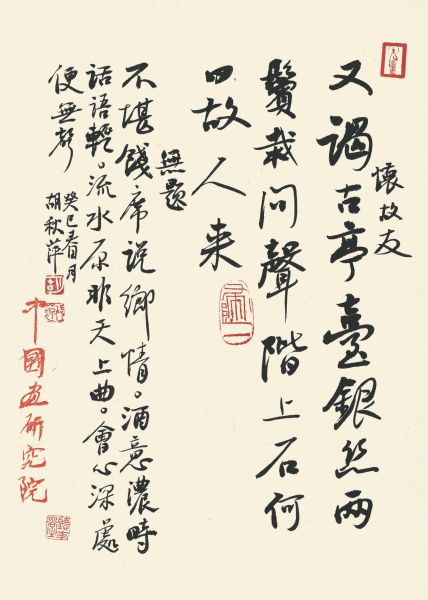 又謁古亭臺銀絲兩
懷故友
鬢栽問聲階上石何
日故人来
無題
不堪餞席说鄉情。酒意濃時
話語輕。流水原非天上曲。會心深處
便無声
癸巳春月
胡秋萍
中國画研究院